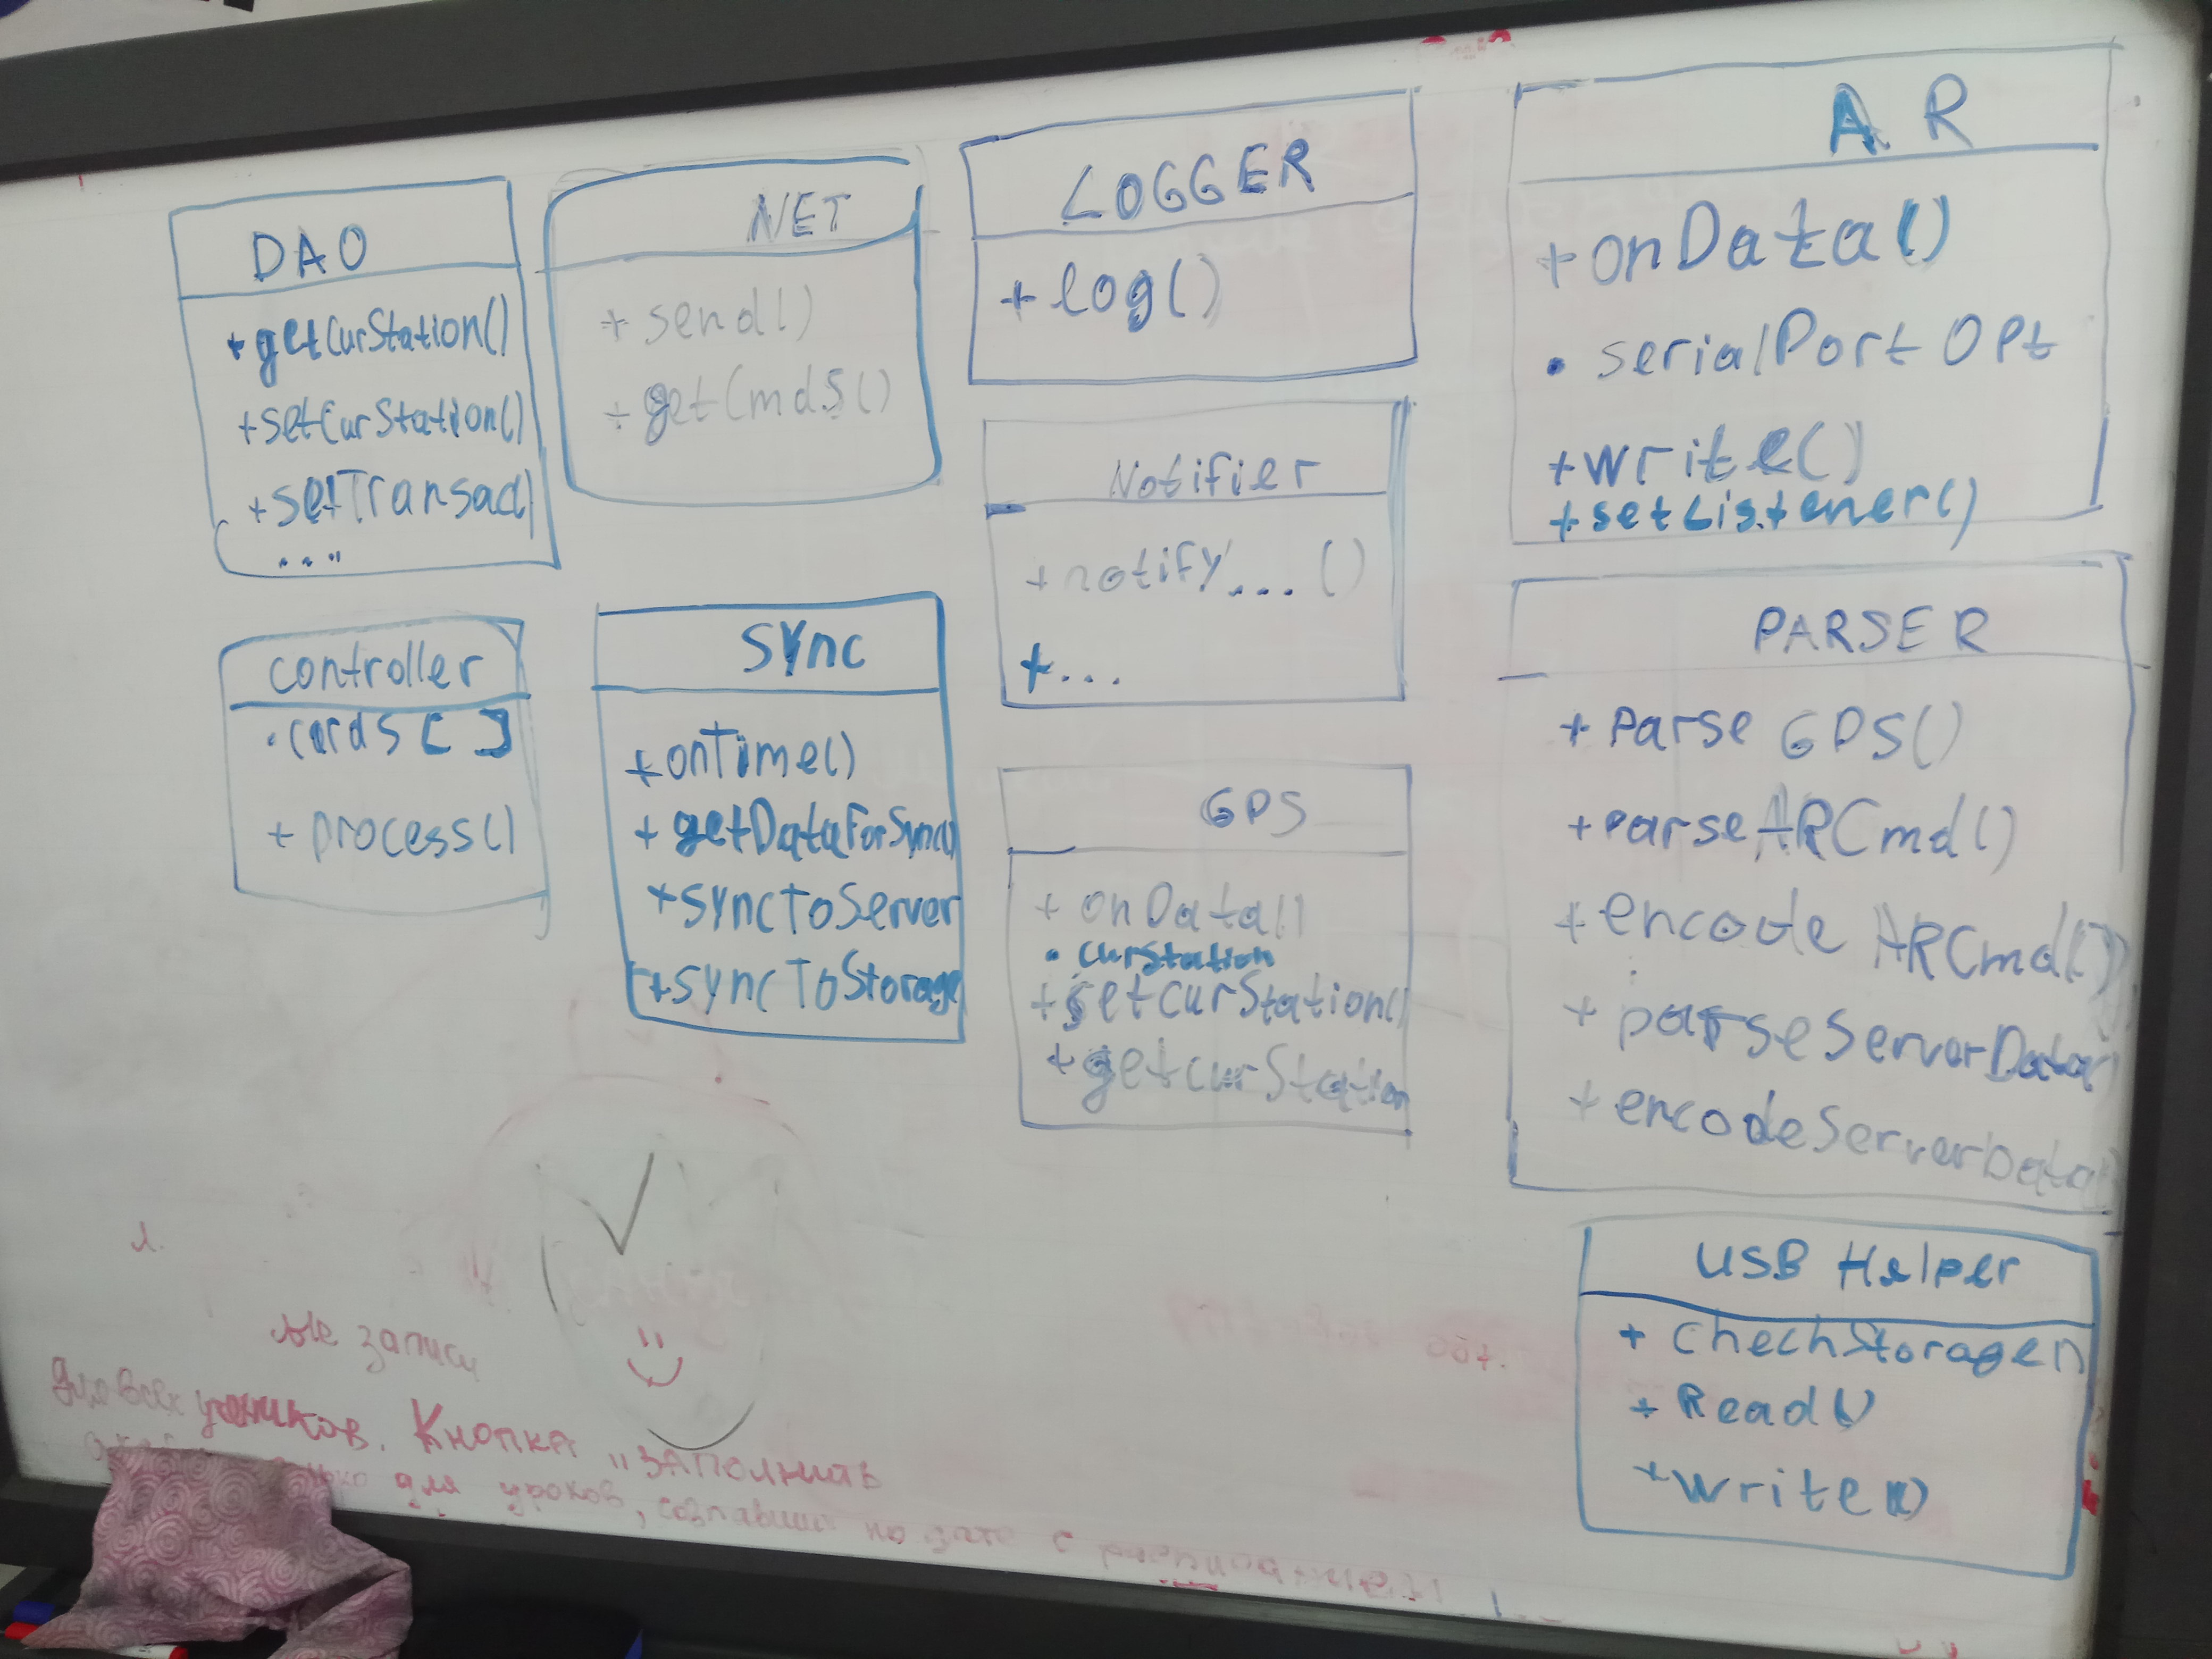 DAO
+getCurStation()
+setCurStation()
+setTransac()
....
NET
+ send()
+ getCmdS()
LOGGER
+ log()
A R
+onData()
• serialPort OPt
+write()
+setListener()
Notifier
+ notify....()
+...
controller
• cards [ ]
+ process()
SYnc
+onTime()
+ getDataForSync()
+syncToServer
+syncToStorage
GPS
+ onData()
• curStation
+setcurStation()
+getcurStation
PARSER
+ Parse GPS()
+parseARCmd()
+encode ARCmd()
+ parseServerData
+ encodeServerData
USB Helper
+ ChechStorage()
+ Read()
+write()
ые записи
для всех учеников. Кнопка "заполнить
для уроков, на дате с